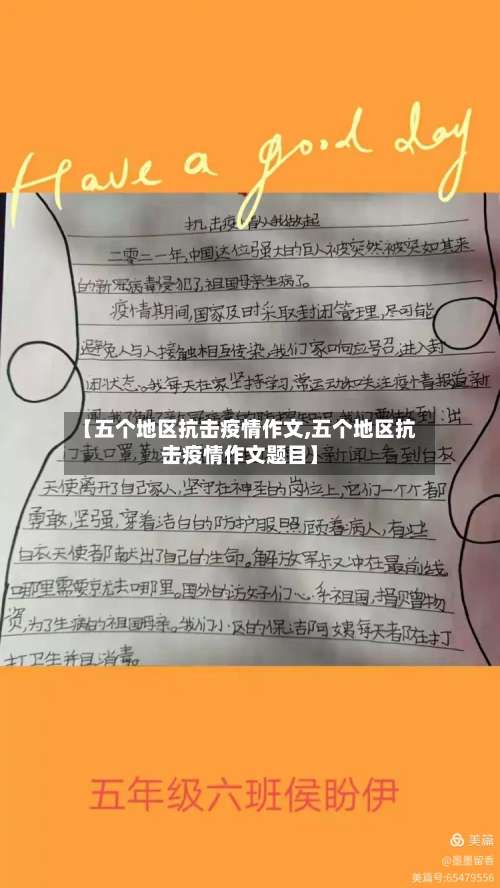 Have a good day
抗击疫情从我做起
二零二一年,中国这位强大的巨人被突然被突如其来
的新冠病毒侵犯了,祖国母亲生病了。
疫情期间,国家及时采取封闭管理,尽可能
避免人与人接触相互传染,我们家响应号召,进入封
闭状态。我每天在家坚持学习,常运动和关注疫情报道新
出
【五个地区抗击疫情作文,五个地区抗
击疫情作文题目】
门戴口罩,勤
新闻上看到白衣
天使离开了自己家人,坚守在神圣的岗位上,它们一个个都
勇敢,坚强,穿着洁白的防护服照顾着病人,有些
白衣天使者献出了自己的生命。解放军叔叔冲在最前线
哪里需要就去哪里。国外的访女子们心系祖国,捐贝曾物
资,为了生病的祖国母亲。我们小区的保洁阿姨每天都在打
打卫生并且消毒。
五年级六班侯盼伊
美篇
@墨墨留香
美篇号:65479556